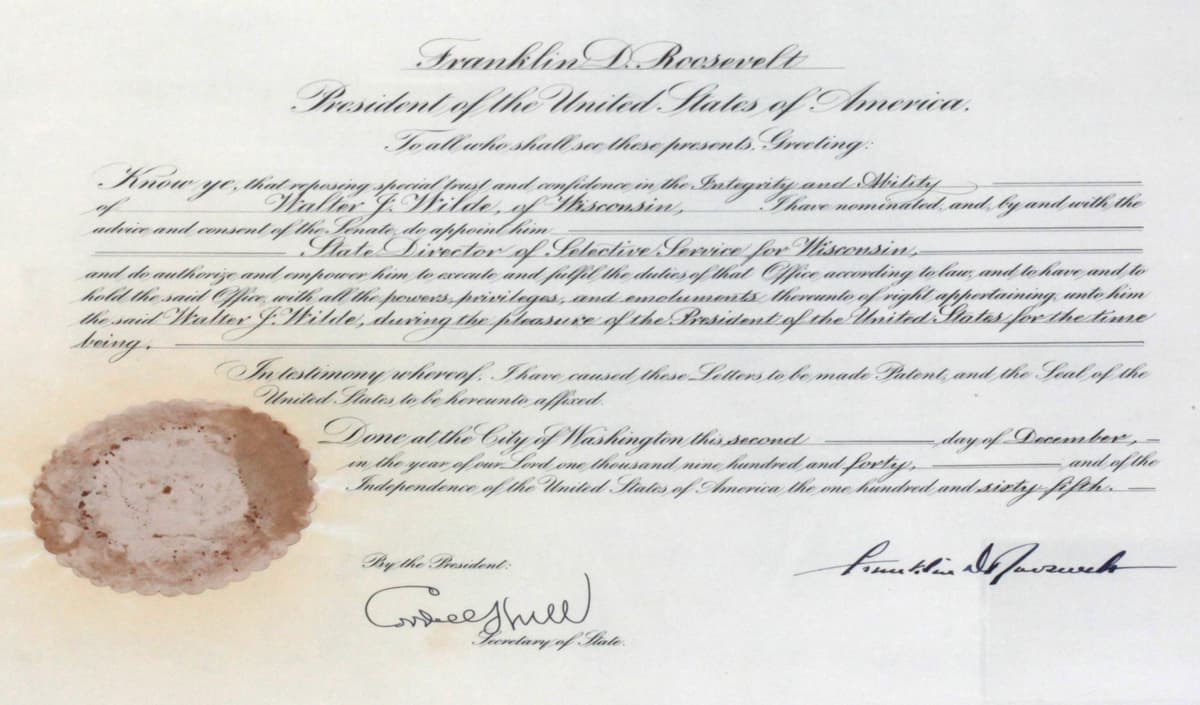 Franklin D. Roosevelt
President of the United States of America.
To all who shall see these presents, Greeting:
Know ye, that reposing special trust and confidence in the Integrity and Ability
of Walter J. Wilde, of Wisconsin, I have nominated, and, by and with the
advice and consent of the Senate, do appoint him
State Director of Selective Service for Wisconsin,
and do authorize and empower him to execute and fulfil the duties of that Office according to law, and to have and to
hold the said Office, with all the powers, privileges, and emoluments thereunto of right appertaining, unto him
the said Walter J. Wilde, during the pleasure of the President of the United States for the time
being.
In testimony whereof, I have caused these Letters to be made Patent, and the Seal of the
United States to be hereunto affixed.
Done at the City of Washington this second day of December,
in the year of our Lord one thousand nine hundred and forty, and of the
Independence of the United States of America the one hundred and sixty-fifth.
By the President:
Franklin D Roosevelt
Cordell Hull
Secretary of State.